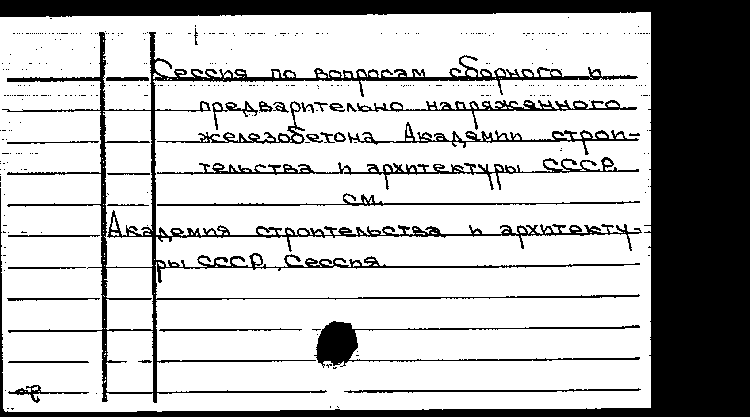 Сессия по вопросам сборного и
предварительно напряженного
железобетона Академии строи-
тельства и архитектуры СССР.
см.
Академия строительства и архитекту-
ры СССР. Сессия.